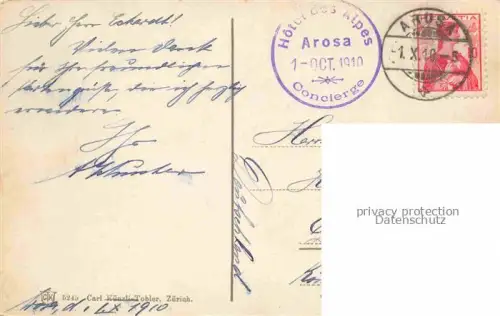 Lieber Herr Eckardt!
Vielen Dank
für Ihre freundlichen
Kartengrüße, die ich herzlich
erwidere
Ihr
Hôtel des Alpes
Arosa
1-OCT. 1910
Concierge
AROSA
1.X.10.-5
HELVETIA
10
Herrn
Deutschland
privacy protection
Datenschutz
5245 Carl Künzli-Tobler, Zürich.
Arosa, 1.X.1910.